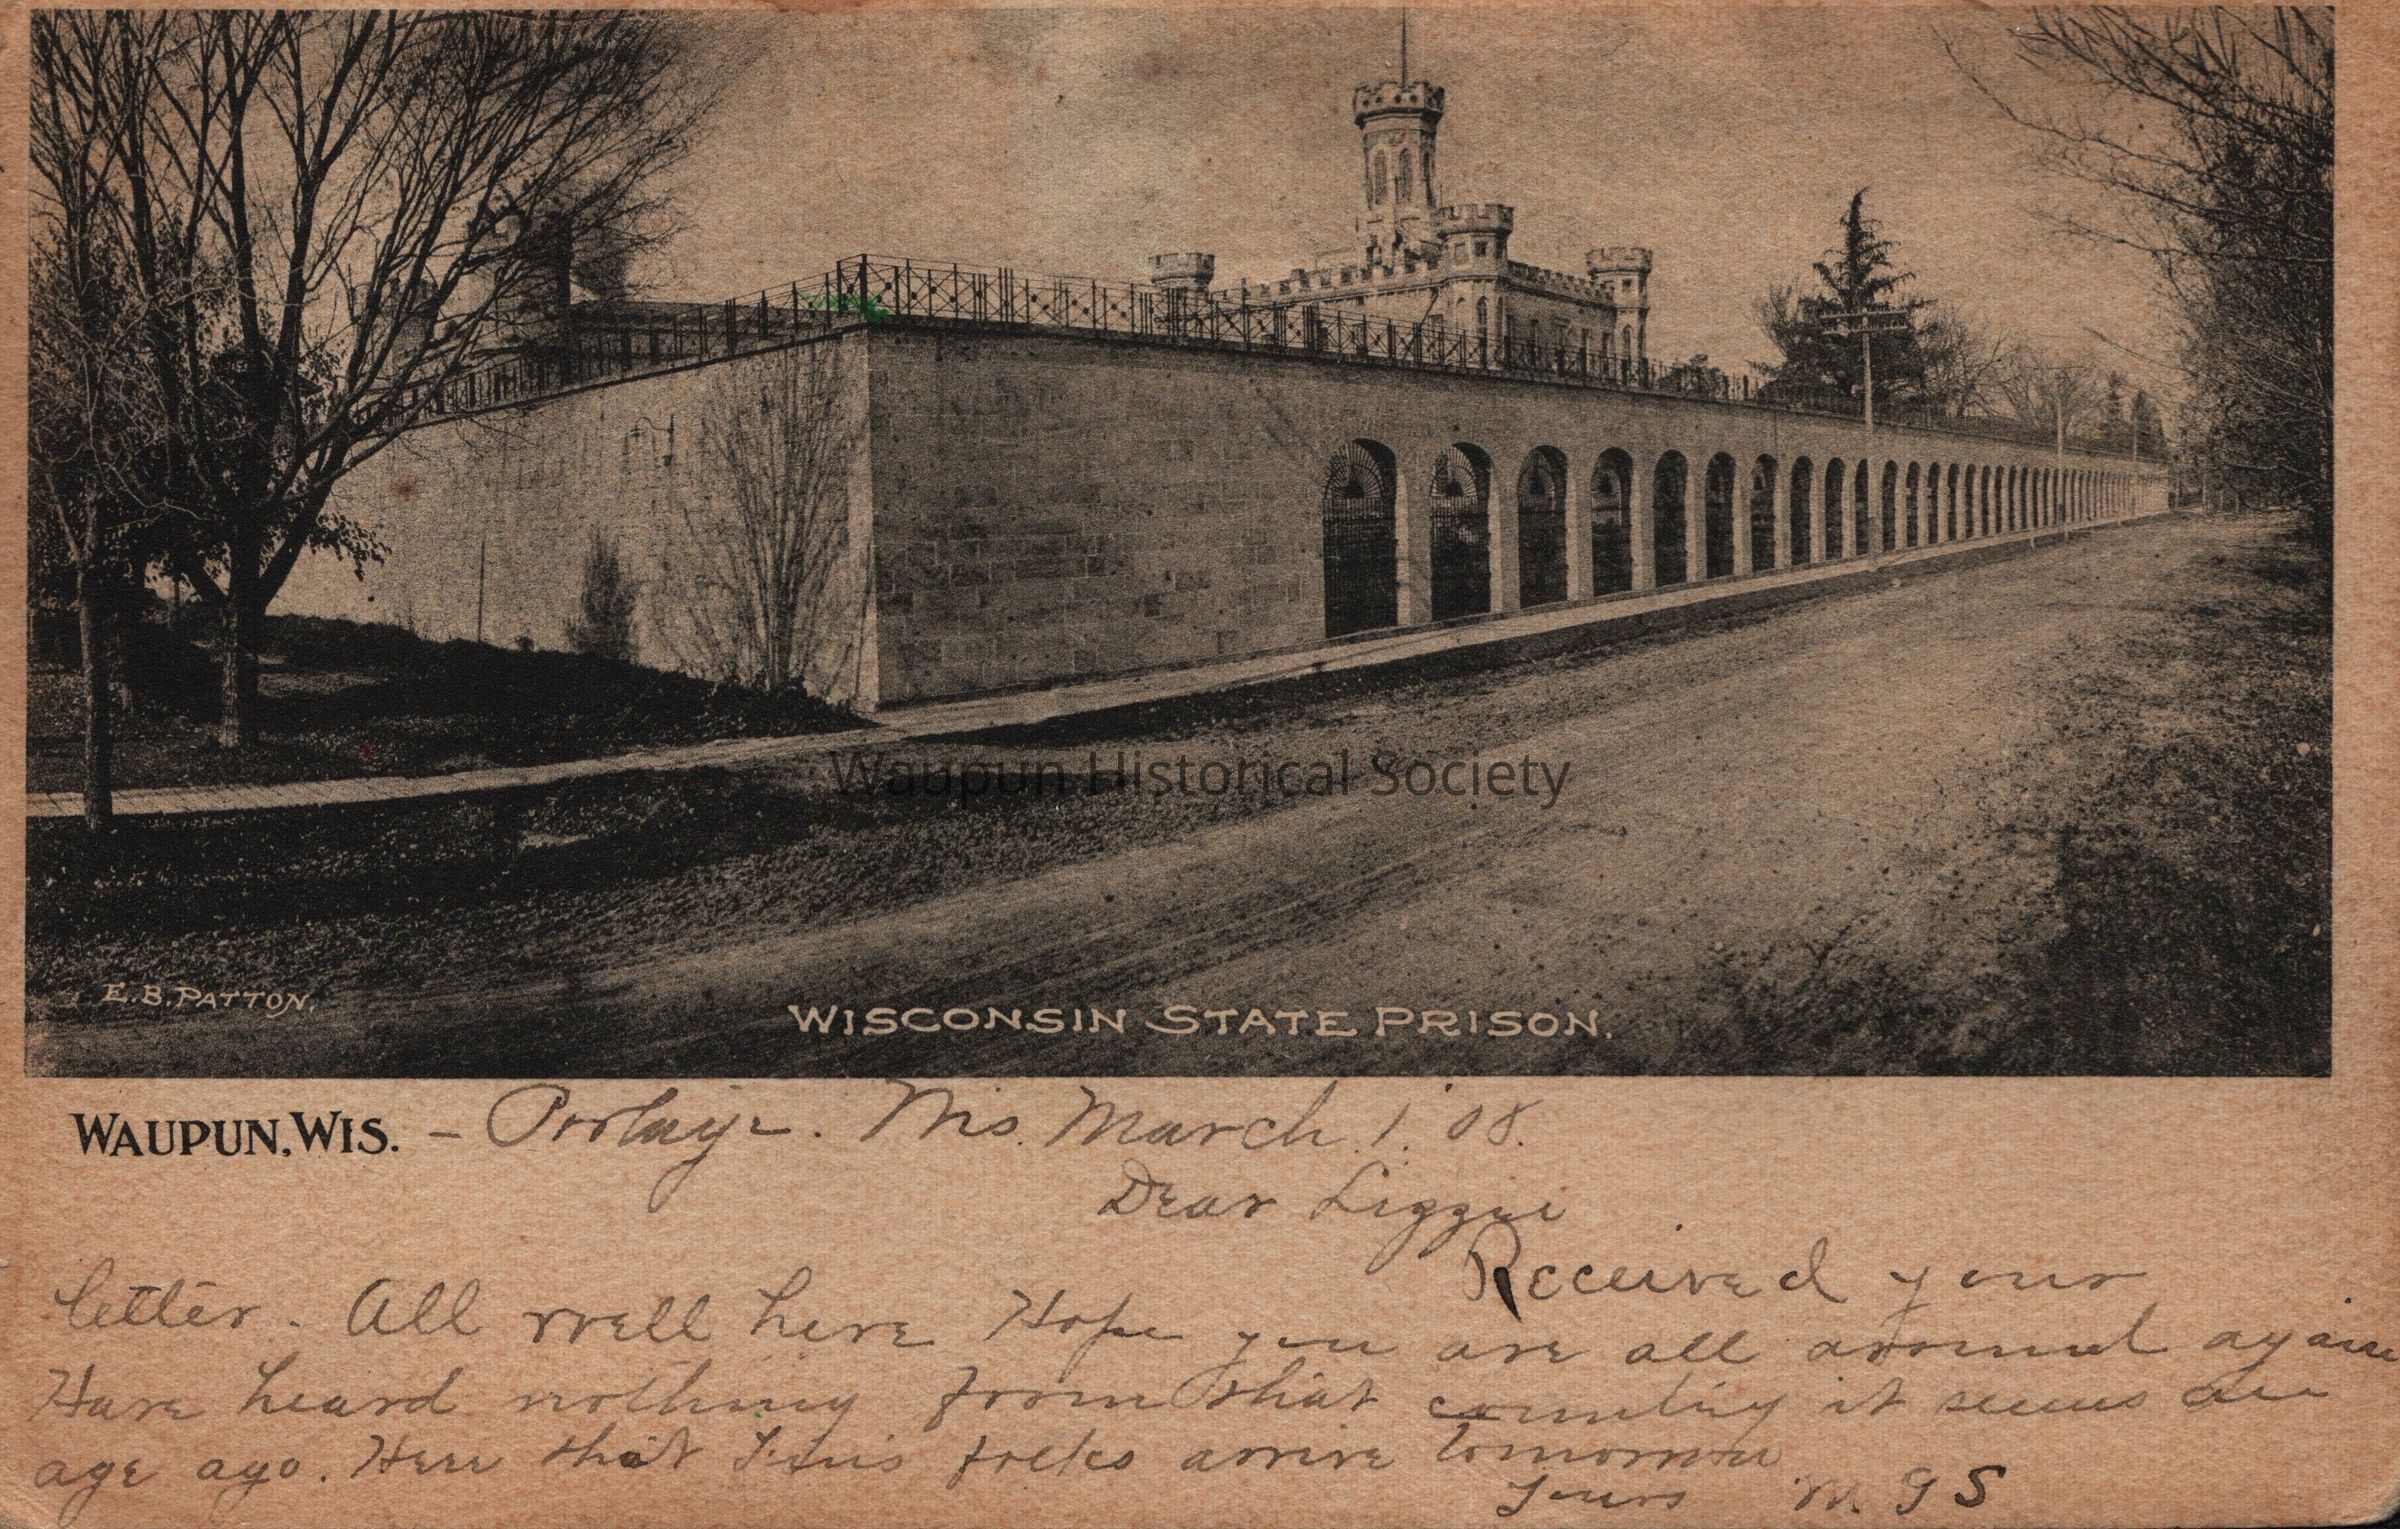 Waupun Historical Society
E. B. PATTON.
WISCONSIN STATE PRISON.
WAUPUN, WIS. – Portage. Wis. March 1. '08.
Dear Lizzie
Received your
letter. All well here Hope you are all around again
Have heard nothing from that country it seems an
age ago. Hear that folks arrive tomorrow
Yours M. G S